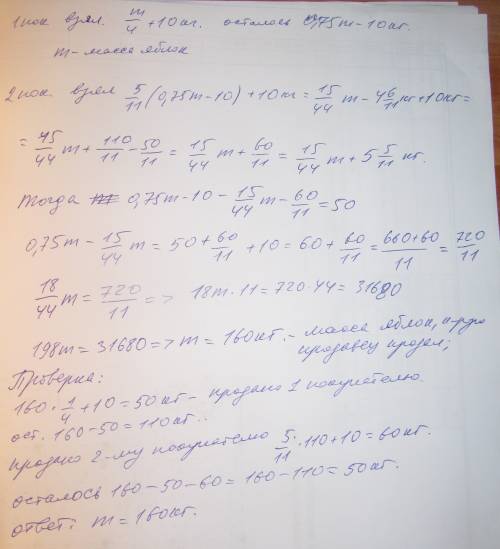 1 пок взял. m/4 + 10 кг. осталось 0,75m - 10 кг.
m - масса яблок
2 пок взял 5/11 (0,75m - 10) + 10 кг = 15/44 m - 4 6/11 кг + 10 кг =
= 45/44 m + 110/11 - 50/11 = 15/44 m + 60/11 = 15/44 m + 5 5/11 кг.
Тогда 0,75m - 10 - 15/44 m - 60/11 = 50
0,75m - 15/44 m = 50 + 60/11 + 10 = 60 + 60/11 = 660+60/11 = 720/11
18/44 m = 720/11 => 18m · 11 = 720 · 44 = 31680
198m = 31680 => m = 160 кг. - масса яблок, к-рую
продавец продал;
Проверка:
160 · 1/4 + 10 = 50 кг - продано 1 покупателю.
ост. 160 - 50 = 110 кг..
продано 2-му покупателю 5/11 · 110 + 10 = 60 кг.
осталось 160 - 50 - 60 = 160 - 110 = 50 кг.
ответ: m = 160 кг.